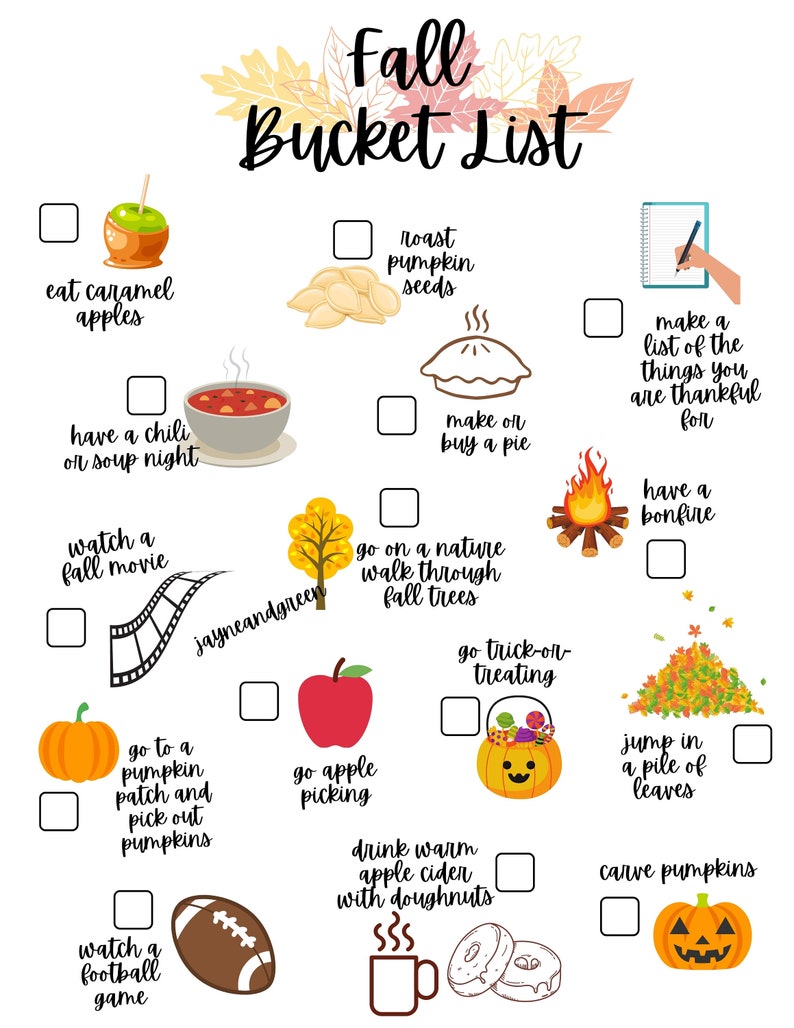 Fall
Bucket List
eat caramel
apples
roast
pumpkin
seeds
make a
list of the
things you
are thankful
for
have a chili
or soup night
make or
buy a pie
have a
bonfire
watch a
fall movie
go on a nature
walk through
fall trees
jayneandgreen
go trick-or-
treating
go to a
pumpkin
patch and
pick out
pumpkins
go apple
picking
jump in
a pile of
leaves
watch a
football
game
drink warm
apple cider
with doughnuts
carve pumpkins